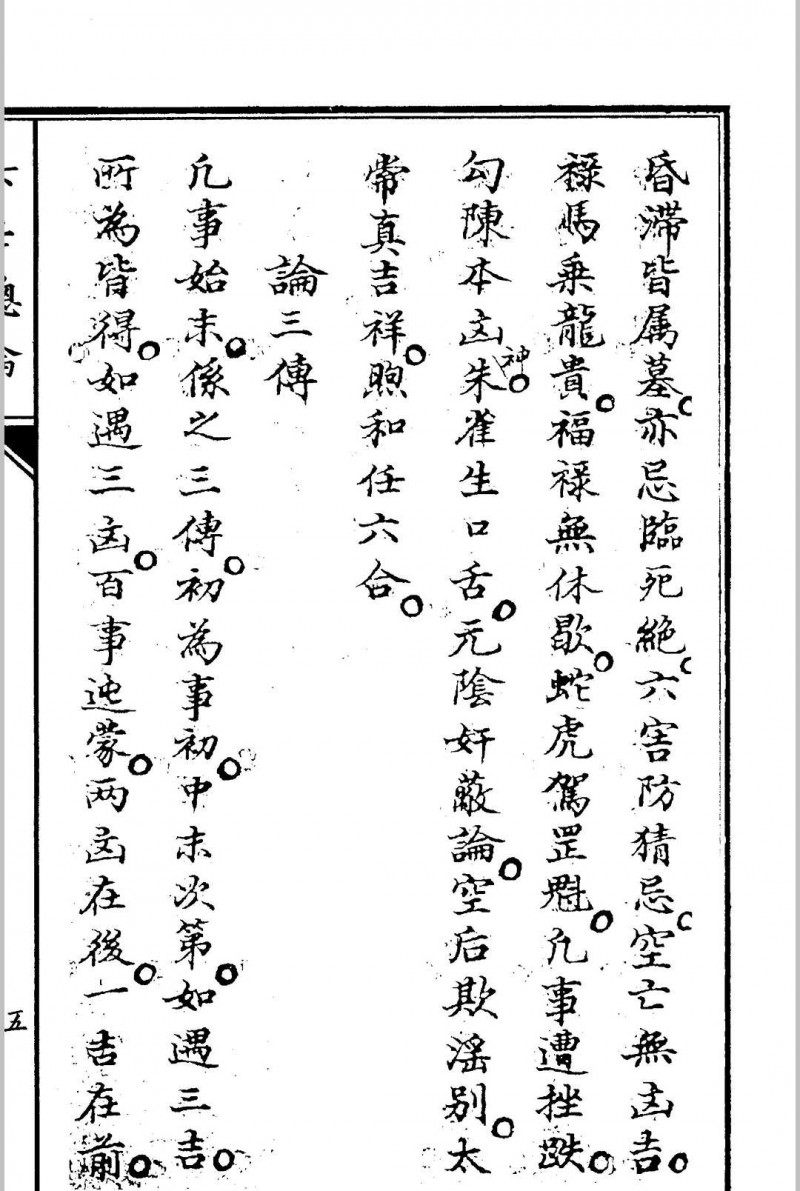 昏滯皆属墓亦忌臨死絶六害防猜忌空亡無凶吉
禄馬乗龍貴福禄無休歇蛇虎駕罡魁凡事遭挫跌
勾陳本凶神朱雀生口舌元陰奸蔽論空后欺滛别太
常真吉祥煦和任六合
論三傳
凡事始末係之三傳初為事初中末次第如遇三吉
所為皆得如遇三凶百事迍蒙两凶在後一吉在前
五